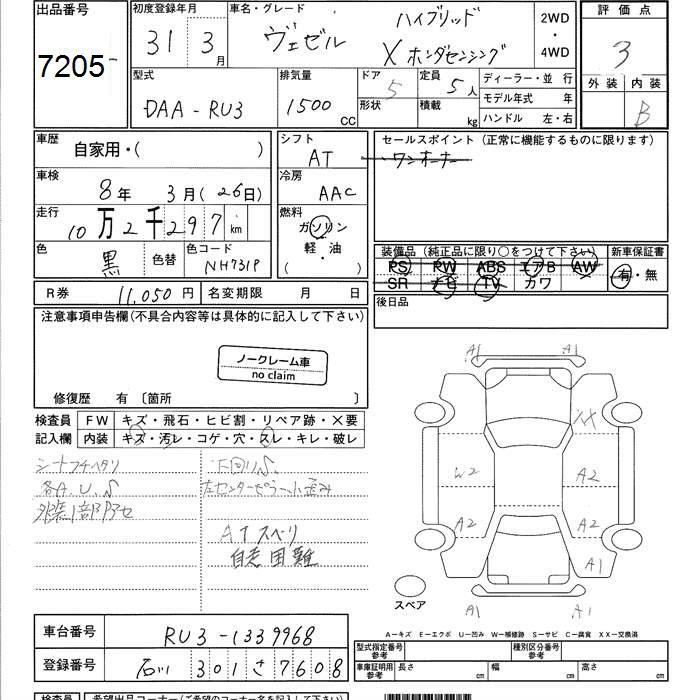 出品番号
7205
初度登録年月
31 3月
車名・グレード
ヴェゼル ハイブリッド
X ホンダセンシング
2WD
・
4WD
評価点
3
外装 内装
B
型式
DAA-RU3
排気量
1500 CC
ドア
5
形状
定員
5人
積載
kg
ディーラー・並行
モデル年式 年
ハンドル 左・右
車歴
自家用・( )
車検
8年 3月(26日)
走行
10万2千297km
色
黒
色替
色コード
NH731P
シフト
AT
冷房
AAC
燃料
ガソリン
軽・油
( )
セールスポイント (正常に機能するものに限ります)
ワンオーナー
装備品 (純正品に限り○をつけて下さい)
PS PW ABS エアB AW
SR ナビ TV カワ
新車保証書
有・無
後日品
R券 11,050円 名変期限 月 日
注意事項申告欄(不具合内容等は具体的に記入して下さい)
ノークレーム車
no claim
修復歴 有 〔箇所 〕
検査員
記入欄
FW キズ・飛石・ヒビ割・リペア跡・×要
内装 キズ・汚レ・コゲ・穴・スレ・キレ・破レ
シートフチヘタリ
各A.U.S
外装1部ボケ
下回りS
左センターピラー小歪み
ATスベリ
自走困難
A1 A1
XX
W2 A2
A2 A2
A1
A1 A1
スペア
A-キズ E-エクボ U-凹み W-補修跡 S-サビ C-腐食 XX-交換済
車台番号 RU3-1339968
登録番号 石川 301 さ 7608
型式指定番号
参考
種別区分番号
参考
車庫証明用
参考
長さ cm 幅 cm 高さ cm